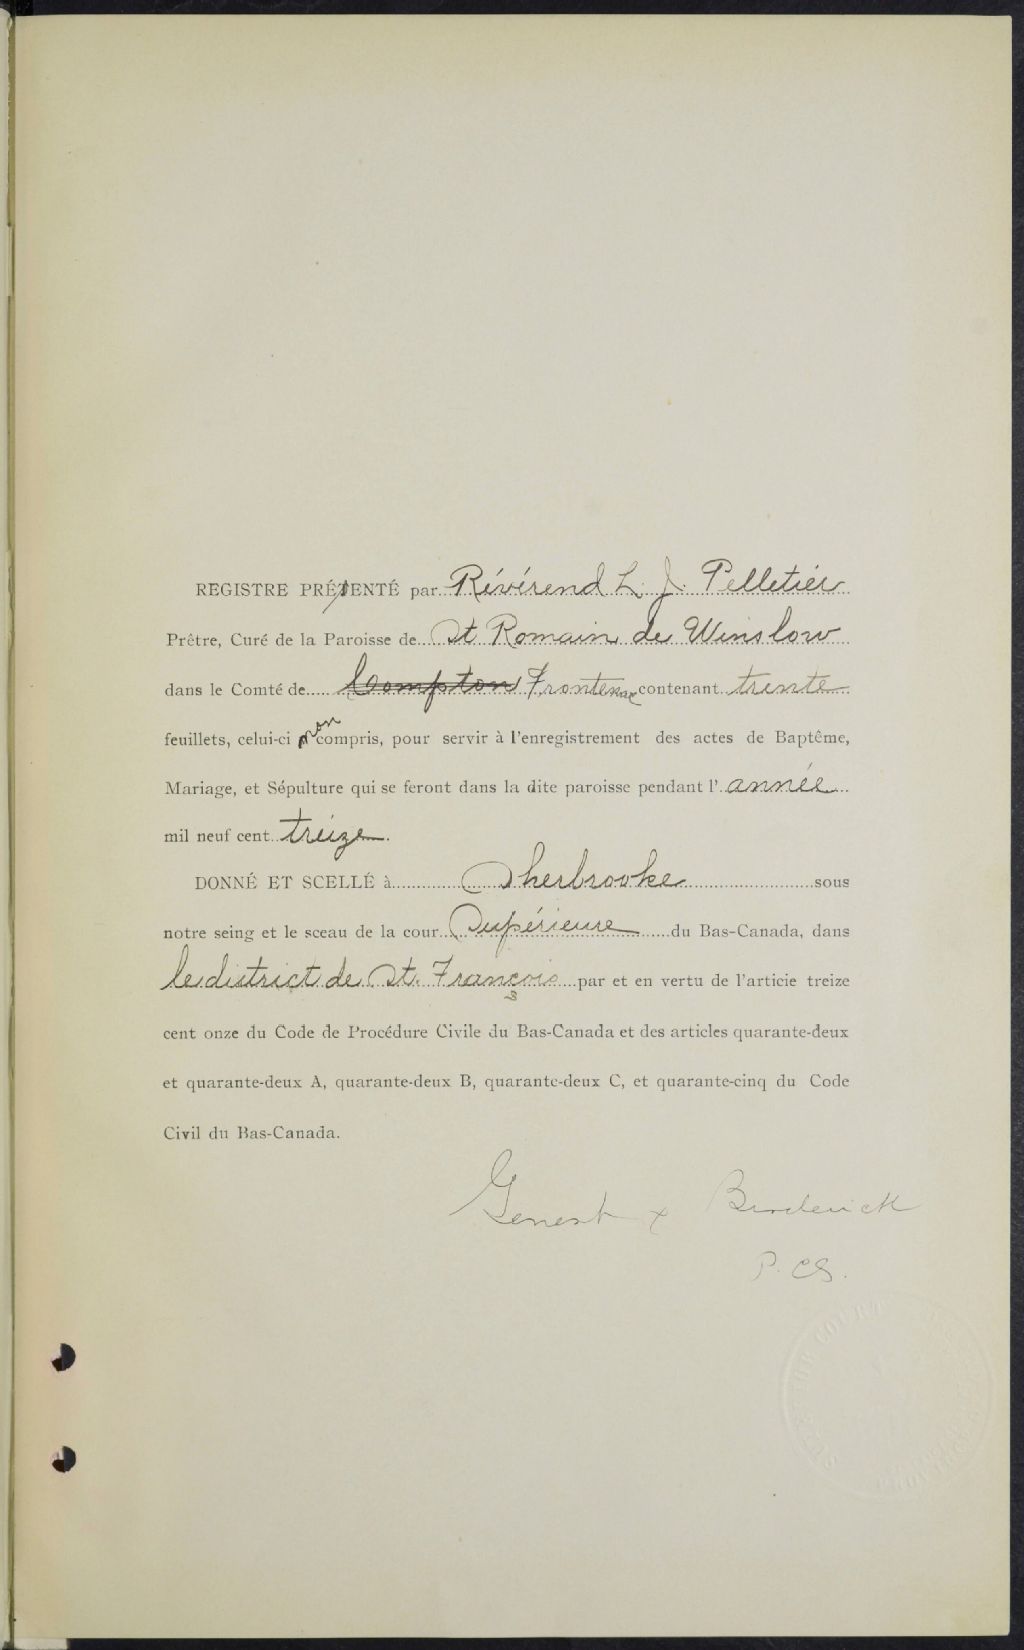 REGISTRE PRÉSENTÉ par Révérend L. J. Pelletier
Prêtre, Curé de la Paroisse de St Romain de Winslow
dans le Comté de Compton Frontenac contenant trente
feuillets, celui-ci non compris, pour servir à l'enregistrement des actes de Baptême,
Mariage, et Sépulture qui se feront dans la dite paroisse pendant l'année
mil neuf cent treize.
DONNÉ ET SCELLÉ à Sherbrooke sous
notre seing et le sceau de la cour Supérieure du Bas-Canada, dans
le district de St. François par et en vertu de l'articie treize
cent onze du Code de Procédure Civile du Bas-Canada et des articles quarante-deux
et quarante-deux A, quarante-deux B, quarante-deux C, et quarante-cinq du Code
Civil du Bas-Canada.
Genest & Broderick
P. CS.
SUPERIOR COURT